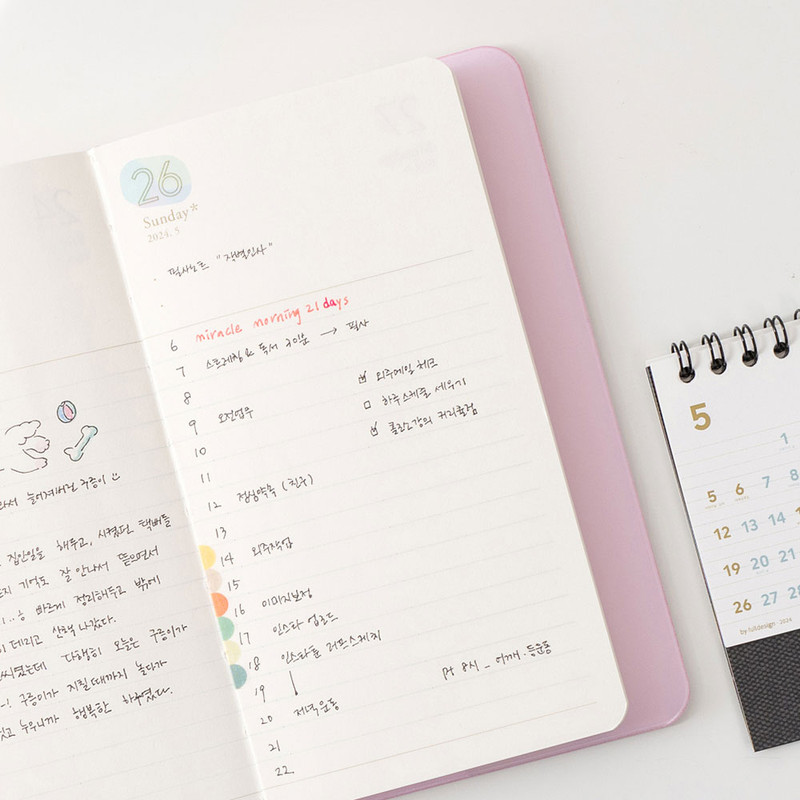 라서 늘어져버린 구름이
집안일을 해두고, 시켰던 택배들
기억도 잘 안나서 뜯으면서
바르게 정리해두고 밖에
데리고 산책 나갔다.
씨였는데 다행히 오늘은 구름이가
구름이가 지칠때까지 놀다가
누우니까 행복한 하루였다.
26
Sunday*
2024. 5
· 필사노트 "장별인사"
·
6 miracle morning 21 days
7 스트레칭 & 독서 30분 → 필사
8
☑ 외주메일 체크
9 오전업무
□ 하루스케줄 세우기
☑ 클린소강의 커리큘럼
10
11
12 점심약속 (친구)
13
14 외주작업
15
16 이미지보정
17 인스타 업로드
18 인스타툰 러프스케치
19
pt 8시 _ 어깨. 등운동
20 저녁운동
21
22
5
1
5 6 7 8
12 13 14
19 20 21
26 27 28
by fulldesign · 2024